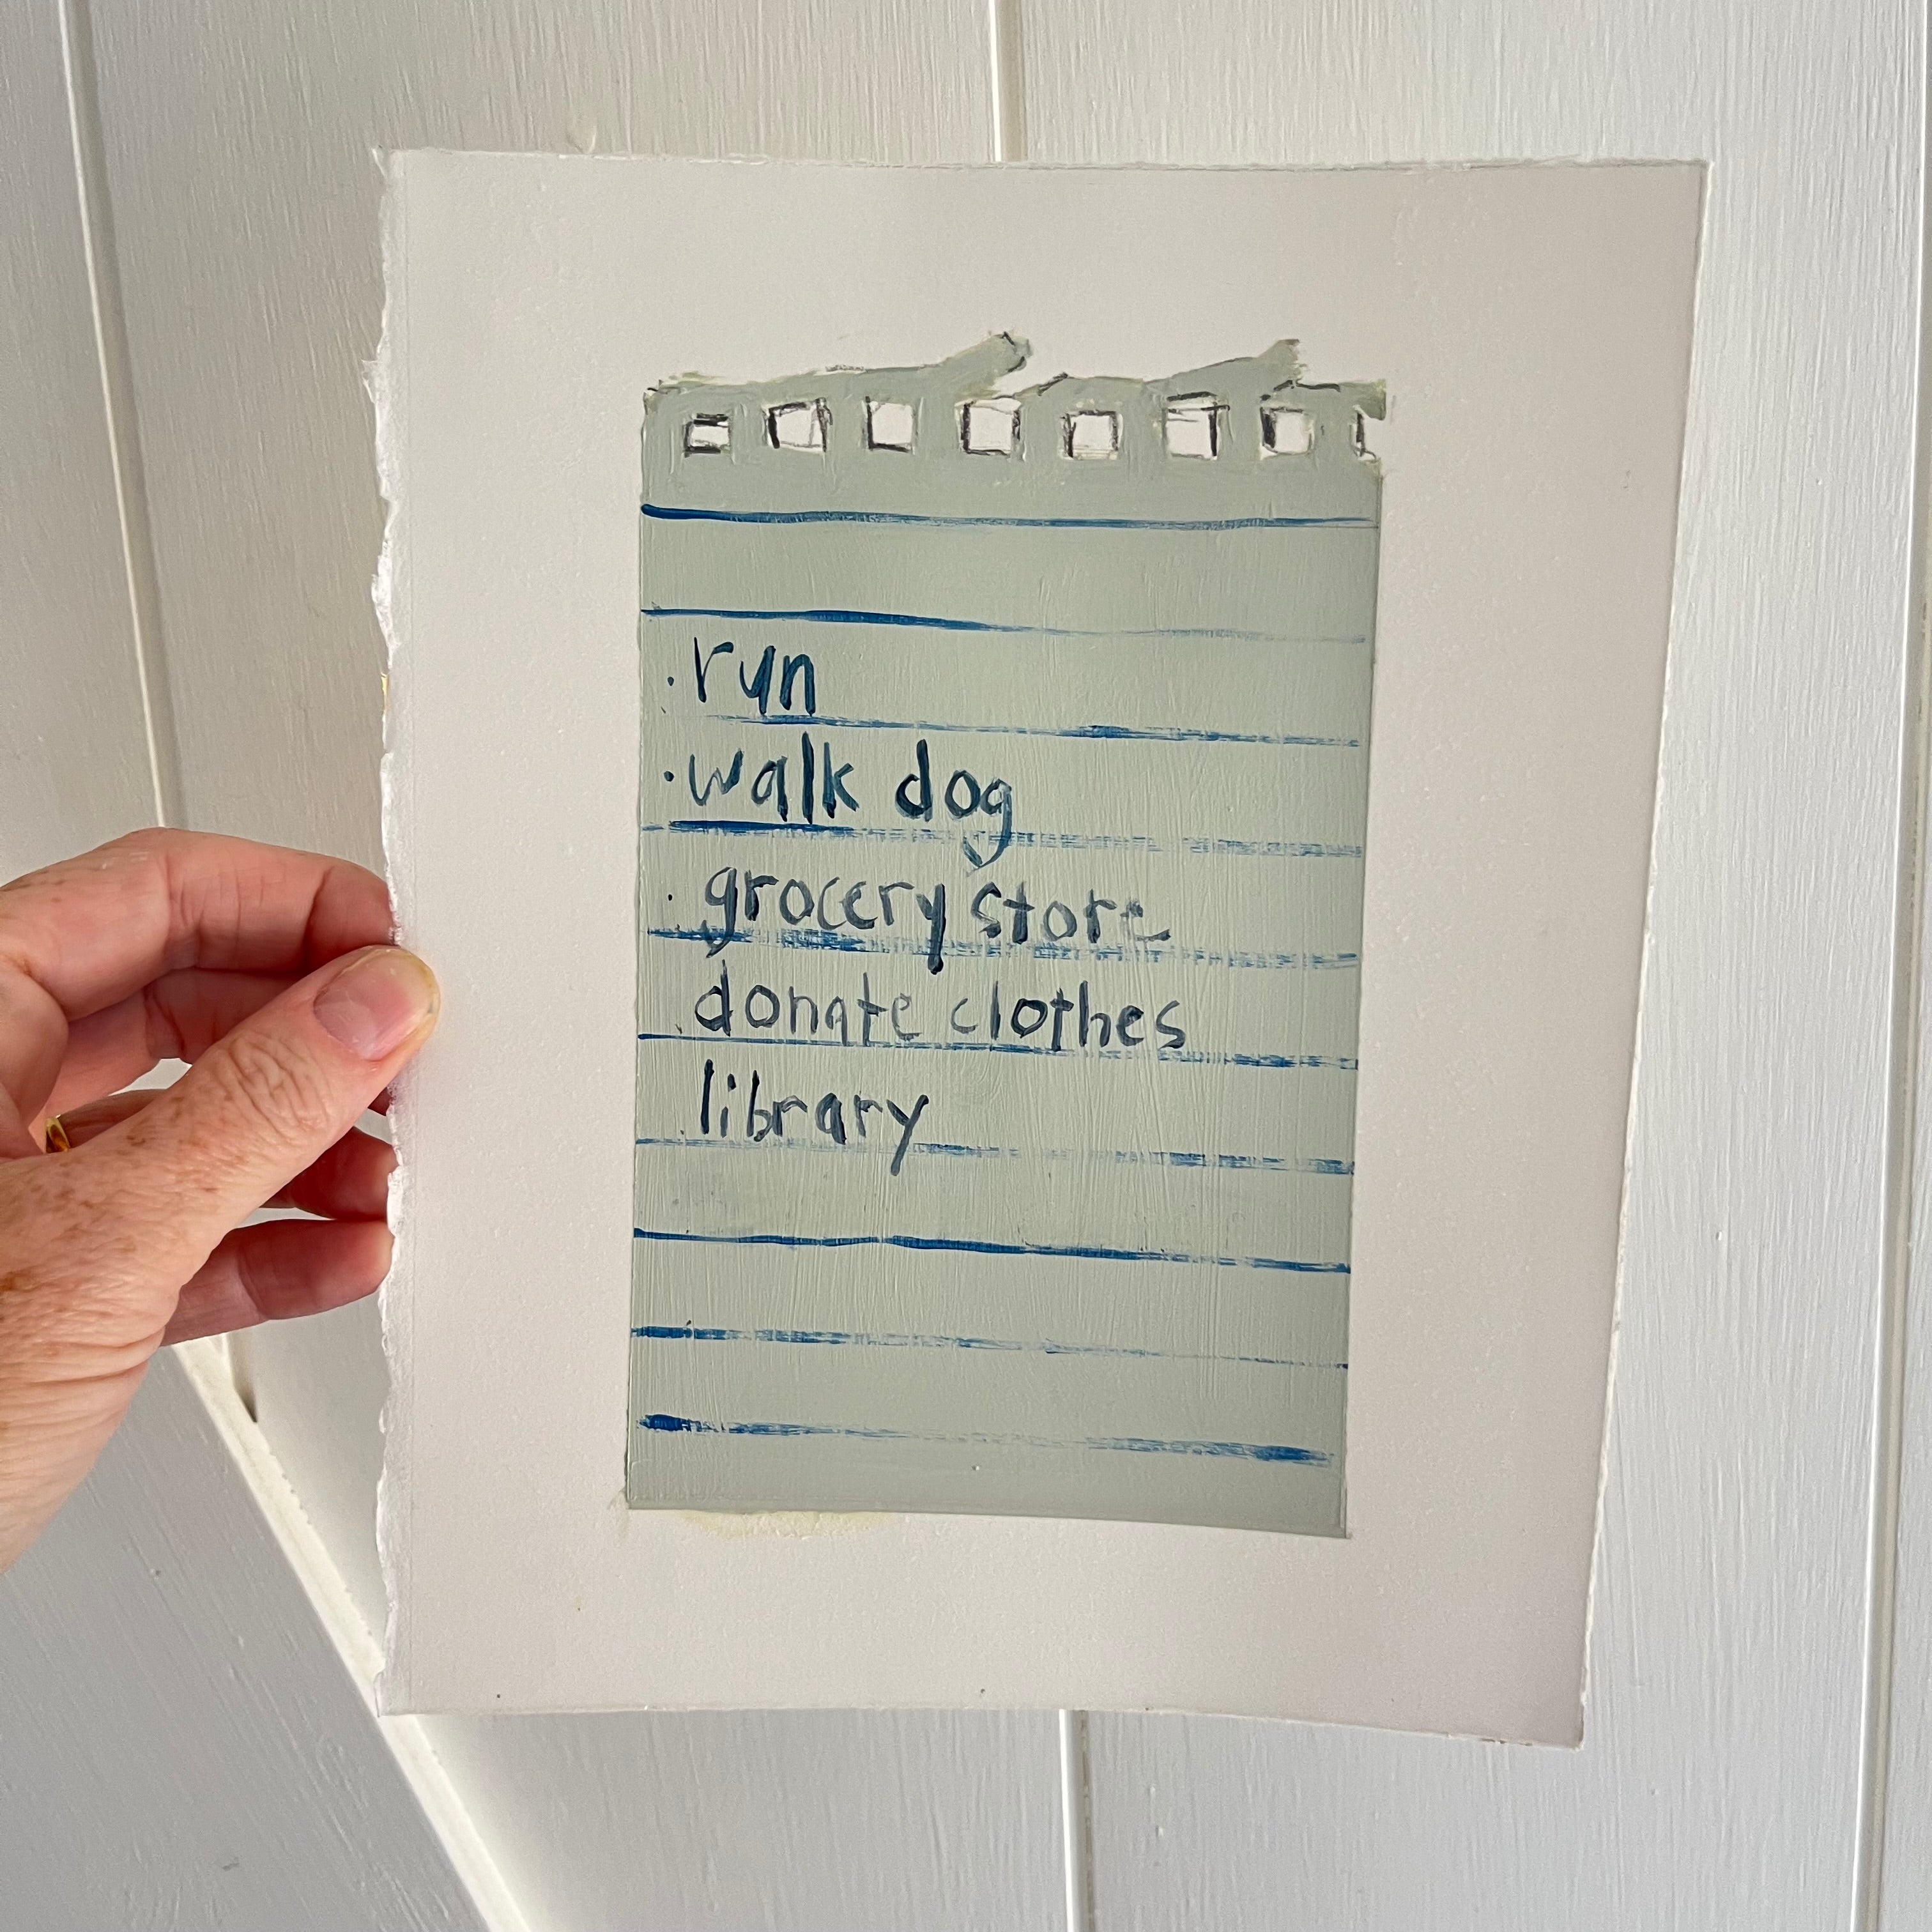 · run
· walk dog
· grocery store
. donate clothes
. library